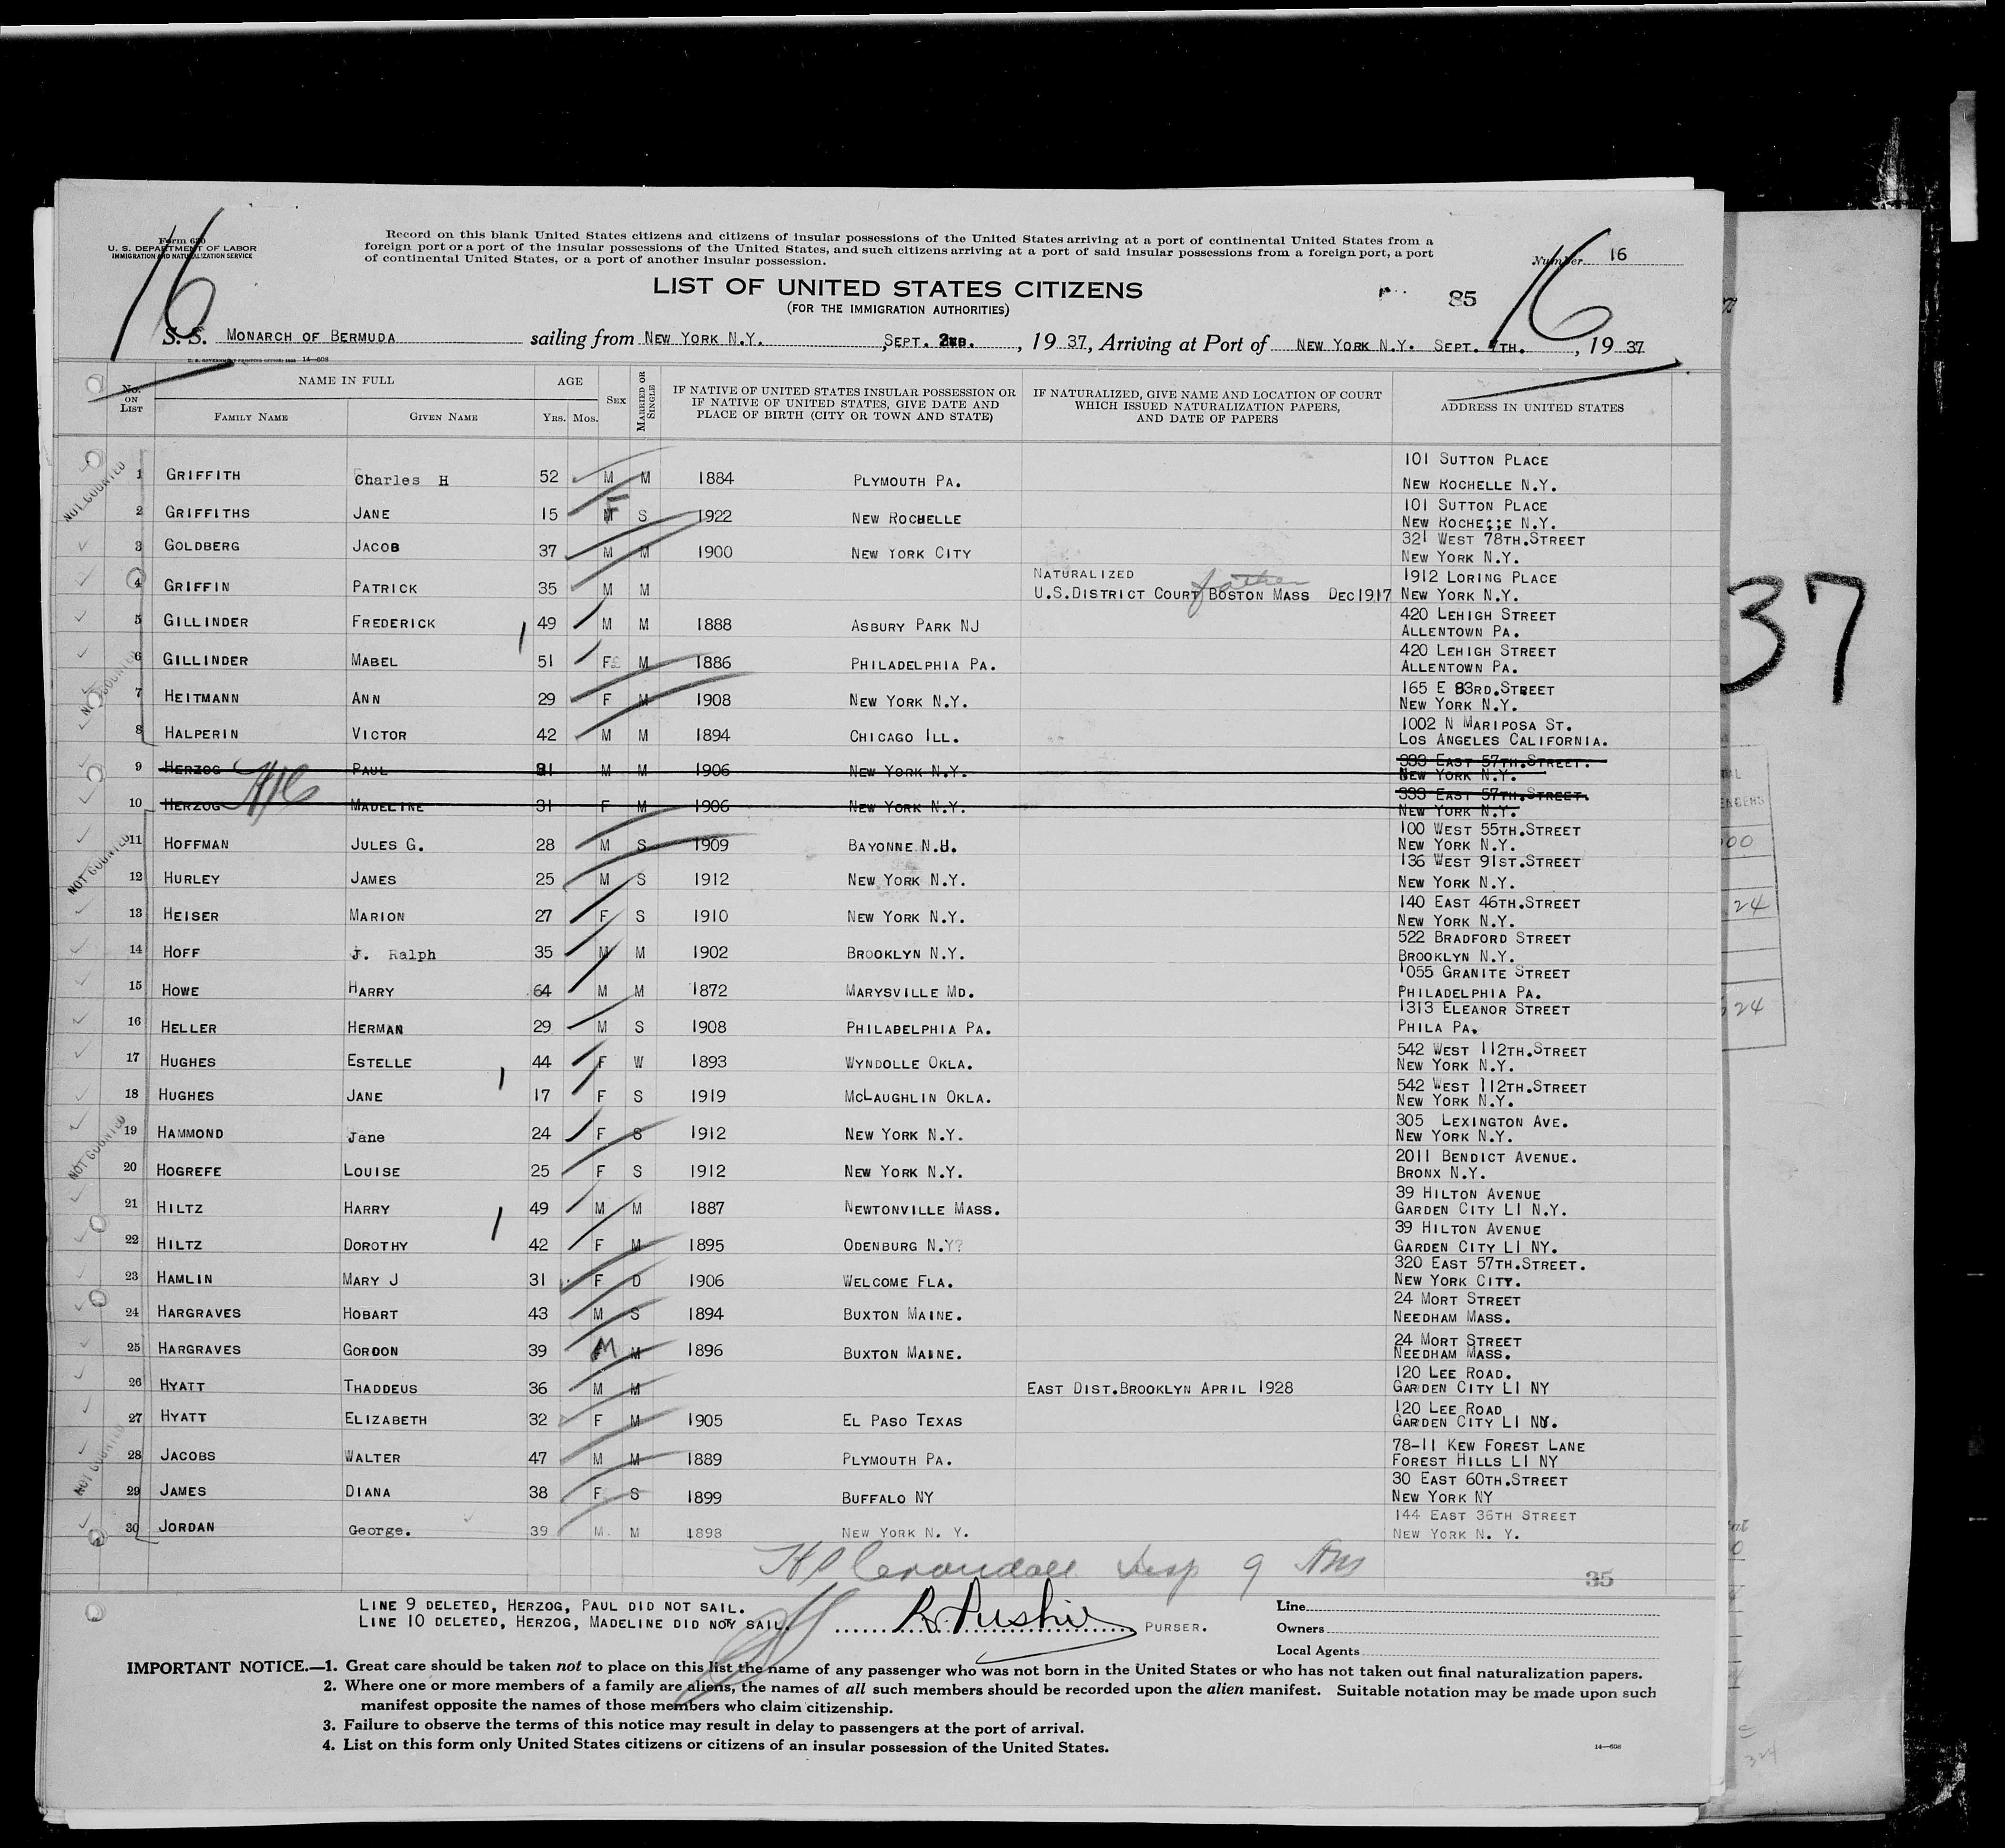 16
Form 630
U. S. DEPARTMENT OF LABOR
IMMIGRATION AND NATURALIZATION SERVICE
Record on this blank United States citizens and citizens of insular possessions of the United States arriving at a port of continental United States from a
foreign port or a port of the insular possessions of the United States, and such citizens arriving at a port of said insular possessions from a foreign port, a port
of continental United States, or a port of another insular possession.
Number 16
16
LIST OF UNITED STATES CITIZENS
(FOR THE IMMIGRATION AUTHORITIES)
85
S. S. MONARCH OF BERMUDA sailing from NEW YORK N.Y. SEPT. 2ND. , 19 37, Arriving at Port of NEW YORK N.Y. SEPT. 7TH. , 19 37
14—608
No. ON LIST NAME IN FULL FAMILY NAME GIVEN NAME AGE Yrs. Mos. SEX MARRIED OR SINGLE IF NATIVE OF UNITED STATES INSULAR POSSESSION OR IF NATIVE OF UNITED STATES, GIVE DATE AND PLACE OF BIRTH (CITY OR TOWN AND STATE) IF NATURALIZED, GIVE NAME AND LOCATION OF COURT WHICH ISSUED NATURALIZATION PAPERS, AND DATE OF PAPERS ADDRESS IN UNITED STATES
NOT COUNTED
1 GRIFFITH Charles H 52 M M 1884 PLYMOUTH PA. 101 SUTTON PLACE
NEW ROCHELLE N.Y.
2 GRIFFITHS JANE 15 F S 1922 NEW ROCHELLE 101 SUTTON PLACE
NEW ROCHE;;E N.Y.
3 GOLDBERG JACOB 37 M M 1900 NEW YORK CITY 321 WEST 78TH.STREET
NEW YORK N.Y.
4 GRIFFIN PATRICK 35 M M NATURALIZED father 1912 LORING PLACE
U.S.DISTRICT COURT BOSTON MASS DEC1917 NEW YORK N.Y.
5 GILLINDER FREDERICK 49 M M 1888 ASBURY PARK NJ 420 LEHIGH STREET
ALLENTOWN PA.
6 GILLINDER MABEL 51 F M 1886 PHILADELPHIA PA. 420 LEHIGH STREET
ALLENTOWN PA.
NOT COUNTED
7 HEITMANN ANN 29 F M 1908 NEW YORK N.Y. 165 E 83RD.STREET
NEW YORK N.Y.
8 HALPERIN VICTOR 42 M M 1894 CHICAGO ILL. 1002 N MARIPOSA ST.
LOS ANGELES CALIFORNIA.
9 HERZOG PAUL 31 M M 1906 NEW YORK N.Y. 333 EAST 57TH.STREET.
NEW YORK N.Y.
10 HERZOG MADELINE 31 F M 1906 NEW YORK N.Y. 333 EAST 57TH.STREET.
NEW YORK N.Y.
11 HOFFMAN JULES G. 28 M S 1909 BAYONNE N.J. 100 WEST 55TH.STREET
NEW YORK N.Y.
NOT COUNTED
12 HURLEY JAMES 25 M S 1912 NEW YORK N.Y. 136 WEST 91ST.STREET
NEW YORK N.Y.
13 HEISER MARION 27 F S 1910 NEW YORK N.Y. 140 EAST 46TH.STREET
NEW YORK N.Y.
14 HOFF J. Ralph 35 M M 1902 BROOKLYN N.Y. 522 BRADFORD STREET
BROOKLYN N.Y.
15 HOWE HARRY 64 M M 1872 MARYSVILLE MD. 1055 GRANITE STREET
PHILADELPHIA PA.
16 HELLER HERMAN 29 M S 1908 PHILADELPHIA PA. 1313 ELEANOR STREET
PHILA PA.
17 HUGHES ESTELLE 44 F W 1893 WYNDOLLE OKLA. 542 WEST 112TH.STREET
NEW YORK N.Y.
18 HUGHES JANE 17 F S 1919 MCLAUGHLIN OKLA. 542 WEST 112TH.STREET
NEW YORK N.Y.
NOT COUNTED
19 HAMMOND Jane 24 F S 1912 NEW YORK N.Y. 305 LEXINGTON AVE.
NEW YORK N.Y.
20 HOGREFE LOUISE 25 F S 1912 NEW YORK N.Y. 2011 BENDICT AVENUE.
BRONX N.Y.
21 HILTZ HARRY 49 M M 1887 NEWTONVILLE MASS. 39 HILTON AVENUE
GARDEN CITY LI N.Y.
22 HILTZ DOROTHY 42 F M 1895 ODENBURG N.Y? 39 HILTON AVENUE
GARDEN CITY LI NY.
23 HAMLIN MARY J 31 F D 1906 WELCOME FLA. 320 EAST 57TH.STREET.
NEW YORK CITY.
24 HARGRAVES HOBART 43 M S 1894 BUXTON MAINE. 24 MORT STREET
NEEDHAM MASS.
25 HARGRAVES GORDON 39 M M 1896 BUXTON MAINE. 24 MORT STREET
NEEDHAM MASS.
26 HYATT THADDEUS 36 M M EAST DIST.BROOKLYN APRIL 1928 120 LEE ROAD.
GARDEN CITY LI NY
27 HYATT ELIZABETH 32 F M 1905 EL PASO TEXAS 120 LEE ROAD
GARDEN CITY LI NY.
NOT COUNTED
28 JACOBS WALTER 47 M M 1889 PLYMOUTH PA. 78-11 KEW FOREST LANE
FOREST HILLS LI NY
29 JAMES DIANA 38 F S 1899 BUFFALO NY 30 EAST 60TH.STREET
NEW YORK NY
30 JORDAN George. 39 M. M 1898 NEW YORK N. Y. 144 EAST 36TH STREET
NEW YORK N. Y.
H P Crandall Insp 9
35
LINE 9 DELETED, HERZOG, PAUL DID NOT SAIL.
LINE 10 DELETED, HERZOG, MADELINE DID NOT SAIL.
PURSER.
Line
Owners
Local Agents
IMPORTANT NOTICE.—1. Great care should be taken not to place on this list the name of any passenger who was not born in the United States or who has not taken out final naturalization papers.
2. Where one or more members of a family are aliens, the names of all such members should be recorded upon the alien manifest. Suitable notation may be made upon such
manifest opposite the names of those members who claim citizenship.
3. Failure to observe the terms of this notice may result in delay to passengers at the port of arrival.
4. List on this form only United States citizens or citizens of an insular possession of the United States.
14—608
37
00
24
24
324